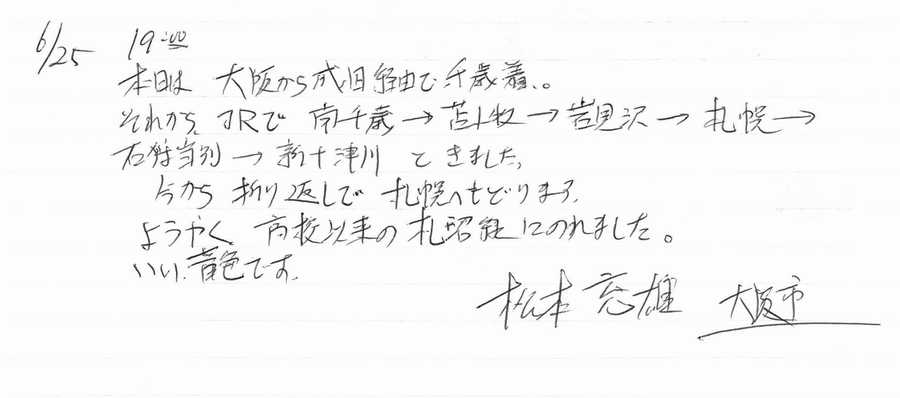 6/25 19:00
本日は 大阪から成田経由で千歳着。
それから、JRで 南千歳→苫小牧→岩見沢→ 札幌→
石狩当別→ 新十津川 ときました。
今から 折り返しで 札幌へもどります。
ようやく、高校以来の 札沼線にのれました。
いい、音色です。
松本 充雄 大阪市